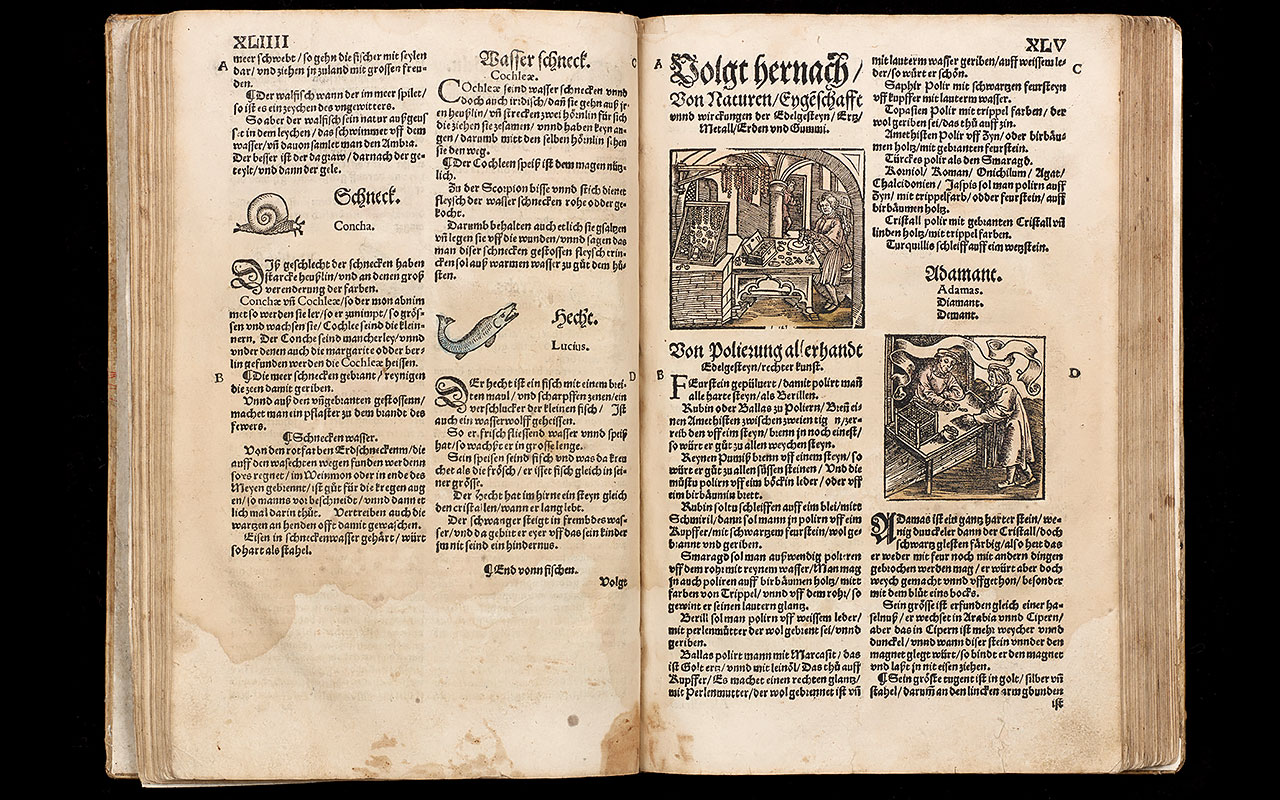 XLIIII
A
meer schwebt / so gehn die fischer mit seylen
dar / vnd ziehen jn zuland mit grossen freu-
den.
¶ Der walfisch wann der im meer spilet /
so ist es ein zeychen des vngewitters.
So aber der walfisch sein natur außgeus
set in dem leychen / das schwimmet vff dem
wasser / vñ dauon samlet man den Ambra.
Der besser ist der da graw / darnach der ge-
teylt / vnd dann der gele.
Schneck.
Concha.
DIß geschlecht der schnecken haben
starcke heußlin / vnd an denen groß
verenderung der farben.
Conchæ vñ Cochleæ / so der mon abnim
met so werden sie ler / so er zunimpt / so grös-
sen vnd wachsen sie / Cochlee seind die klein-
nern. Der Conche seind mancherley / vnnd
vnder denen auch die margarite odder ber-
lin gefunden werden die Cochleæ heissen.
B
¶ Die meer schnecken gebrant / reynigen
die zeen damit geriben.
Vnnd auß den vngebranten gestossenn /
machet man ein pflaster zu dem brandt des
fewers.
¶ Schnecken wasser.
Von den rotfarben Erdschneckenn / die
auff den wasechten wegen funden werdenn
so es regnet / im Weinmon oder in ende des
Meyen gebrennt / ist güt für die kregen aug
en / so manns vor beschneidt / vnnd dann et
lich mal darin thüt. Vertreiben auch die
wartzen an henden offt damit gewaschen.
Eisen in schneckenwasser gehärt / würt
so hart als stahel.
C
Wasser schneck.
Cochleæ.
COchleæ seind wasser schnecken vnnd
doch auch irrdisch / dañ sie gehn auß jr-
en heußlin / vñ strecken zwei hörnlin für sich
die ziehen sie zesamen / vnnd haben keyn au-
gen / darumb mitt den selben hörnlin sůhen
sie den weg.
¶ Der Cochleen speiß ist dem magen nütz-
lich.
Zu der Scorpion bisse vnnd stich dienet
fleysch der wasser schnecken rohe odder ge-
kocht.
Darumb behalten auch etlich sie gsaltzen
vñ legen sie vff die wunden / vnnd sagen das
man diser schnecken gestossen fleysch trin-
cken sol auß warmen wasser zu güt dem hů-
sten.
Hecht.
Lucius.
D
DEr hecht ist ein fisch mit einem brei-
ten maul / vnd scharpffen zenen / ein
verschlucker der kleinen fisch / Ist
auch ein wasserwolff geheissen.
So er frisch fliessend wasser vnnd speiß
hat / so wachßt er in grosse lenge.
Sein speisen seind fisch vnd was da kreu
chet als die frösch / er isset fisch gleich in sei-
ner grösse.
Der hecht hat im hirne ein steyn gleich
den cristallen / wann er lang lebt.
Der schwanger steigt in frembdes was-
ser / vnd da gebirt er eyer vff das sein kinder
jm nit seind ein hindernus.
¶ End vonn fischen.
Volgt
XLV
A
Volgt hernach /
Von Naturen / Eygẽschafft
vnnd wirckungen der Edelgesteyn / Ertz /
Metall / Erden vnd Gummi.
Von Polierung allerhandt
Edelgesteyn / rechter kunst.
B
FEurstein gepülvert / damit polirt mañ
alle harte steyn / als Berillen.
Rubin oder Ballas zu Poliern / Breñ ei-
nen Amethisten zwischen zweien tig n / zer-
reib den vff eim steyn / brenn jn noch einest /
so würt er güt zu allen weychen steyn.
Reynen Pumiß brenn vff einem steyn / so
würt er güt zu allen süssen steinen / Vnd die
müstu polirn vff eim böckin leder / oder vff
eim birbäumin brett.
Rubin soltu schleiffen auff eim blei / mitt
Schmiril / dann sol mann jn polirn vff eim
Kupffer / mit schwartzem feurstein / wol ge-
brannt vnd geriben.
Smaragd sol man außwendig poliren
vff dem rohr mit reynem wasser / Man mag
jn auch poliren auff birbäumen holtz / mitt
farben von Trippel / vnnd vff dem rohr / so
gewint er seinen lautern glantz.
Berill sol man polirn vff weissem leder /
mit perlenmütter der wol gebrent sei / vnnd
geriben.
Ballas polirt mann mit Marcasit / das
ist Golt ertz / vnnd mit leinöl / Das thů auff
Kupffer / Es machet einen rechten glantz /
mit Perlenmutter / der wol gebrennet ist vñ
C
mit lauterm wasser geriben / auff weissem le-
der / so würt er schön.
Saphir Polir mit schwarzen feursteyn
vff kupffer mit lauterm wasser.
Topasien Polir mit trippel farben / der
wol geriben sei / das thů auff zin.
Amethisten Polir vff Zyn / oder birbäu-
men holtz / mit gebranten feurstein.
Türckes polir als den Smaragd.
Korniol / Roman / Onichilum / Agat /
Chalcidonien / Jaspis sol man polirn auff
Zyn / mit trippelfarb / odder feurstein / auff
birbäumen holtz.
Cristall polir mit gebranten Cristall vñ
linden holtz / mit trippel farben.
Turquillis schleiff auff eim wetzstein.
Adamant.
Adamas.
Diamant.
Demant.
D
ADamas ist ein gantz harter stein / we-
nig dunckeler dann der Cristall / doch
schwartz glesten färbig / also hert das
er weder mit feur noch mit andern dingen
gebrochen werden mag / er würt aber doch
weych gemacht vnnd vffgethon / besonder
mit dem blůt eins bocks.
Sein grösse ist erfunden gleich einer ha-
selnuß / er wechset in Arabia vnnd Cipern /
aber das in Cipern ist mehr weycher vnnd
dunckel / vnd wann diser stein vnnder den
magnet glegt würt / so bindt er den magnet
vnd laßt jn nit eisen ziehen.
¶ Sein gröste tugent ist in golt / silber vñ
stahel / darum̃ an den lincken arm gbunden
ist